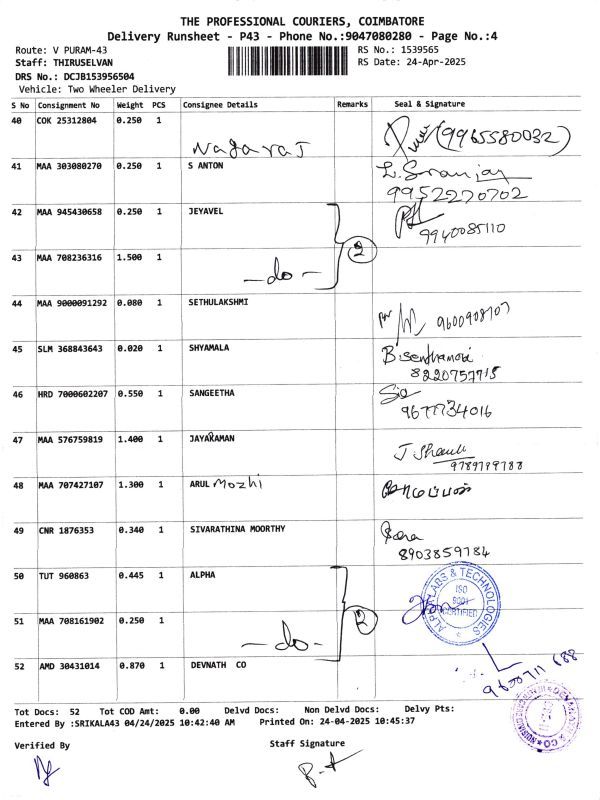 THE PROFESSIONAL COURIERS, COIMBATORE
Delivery Runsheet - P43 - Phone No.:9047080280 - Page No.:4
Route: V PURAM-43 RS No.: 1539565
Staff: THIRUSELVAN RS Date: 24-Apr-2025
DRS No.: DCJB153956504
Vehicle: Two Wheeler Delivery
S No Consignment No Weight PCS Consignee Details Remarks Seal & Signature
40 COK 25312804 0.250 1 Nagaraj (9965580032)
41 MAA 303080270 0.250 1 S ANTON
9952270702
42 MAA 945430658 0.250 1 JEYAVEL
9940085110
43 MAA 708236316 1.500 1 -do- 2
44 MAA 9000091292 0.080 1 SETHULAKSHMI
9600908707
45 SLM 368843643 0.020 1 SHYAMALA
8220757715
46 HRD 7000602207 0.550 1 SANGEETHA
9677734016
47 MAA 576759819 1.400 1 JAYARAMAN
9789779788
48 MAA 707427107 1.300 1 ARUL Mozhi
49 CNR 1876353 0.340 1 SIVARATHINA MOORTHY
8903859784
50 TUT 960863 0.445 1 ALPHA
ALPHA LABS & TECHNOLOGIES
ISO
9001
CERTIFIED
51 MAA 708161902 0.250 1 -do- 2
52 AMD 30431014 0.870 1 DEVNATH CO
9600711688
Tot Docs: 52 Tot COD Amt: 0.00 Delvd Docs: Non Delvd Docs: Delvy Pts:
Entered By :SRIKALA43 04/24/2025 10:42:40 AM Printed On: 24-04-2025 10:45:37
Verified By Staff Signature